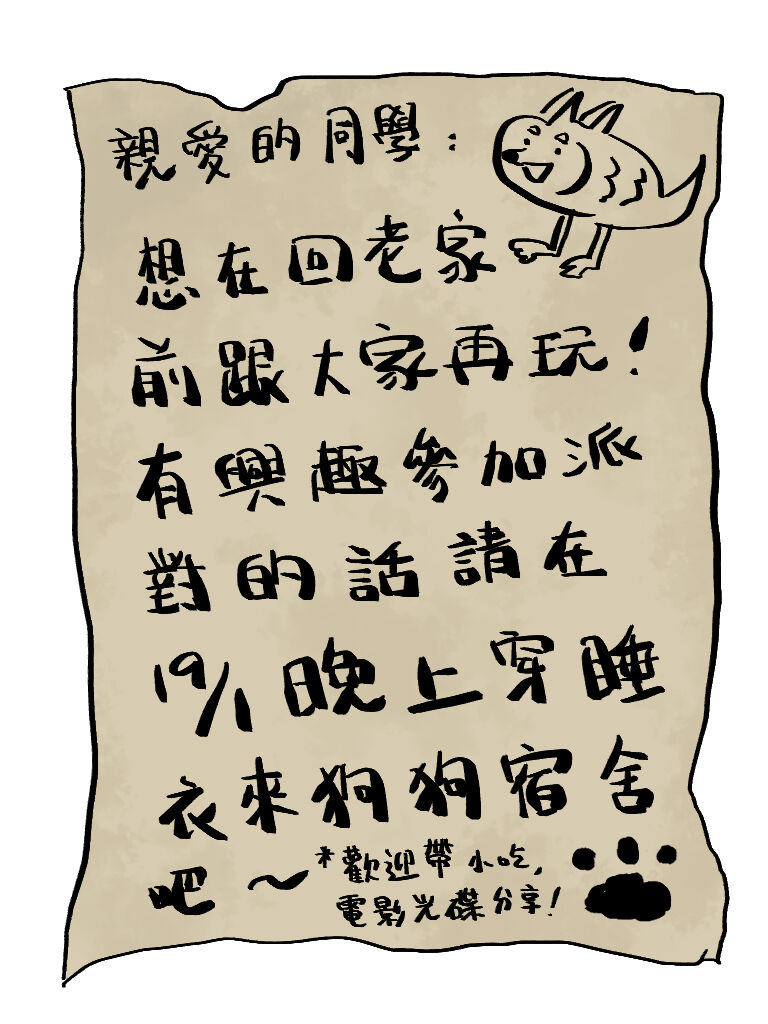 親愛的同學：
想在回老家
前跟大家再玩！
有興趣參加派
對的話請在
19/1晚上穿睡
衣來狗狗宿舍
吧～
*歡迎帶小吃，
電影光碟分享！